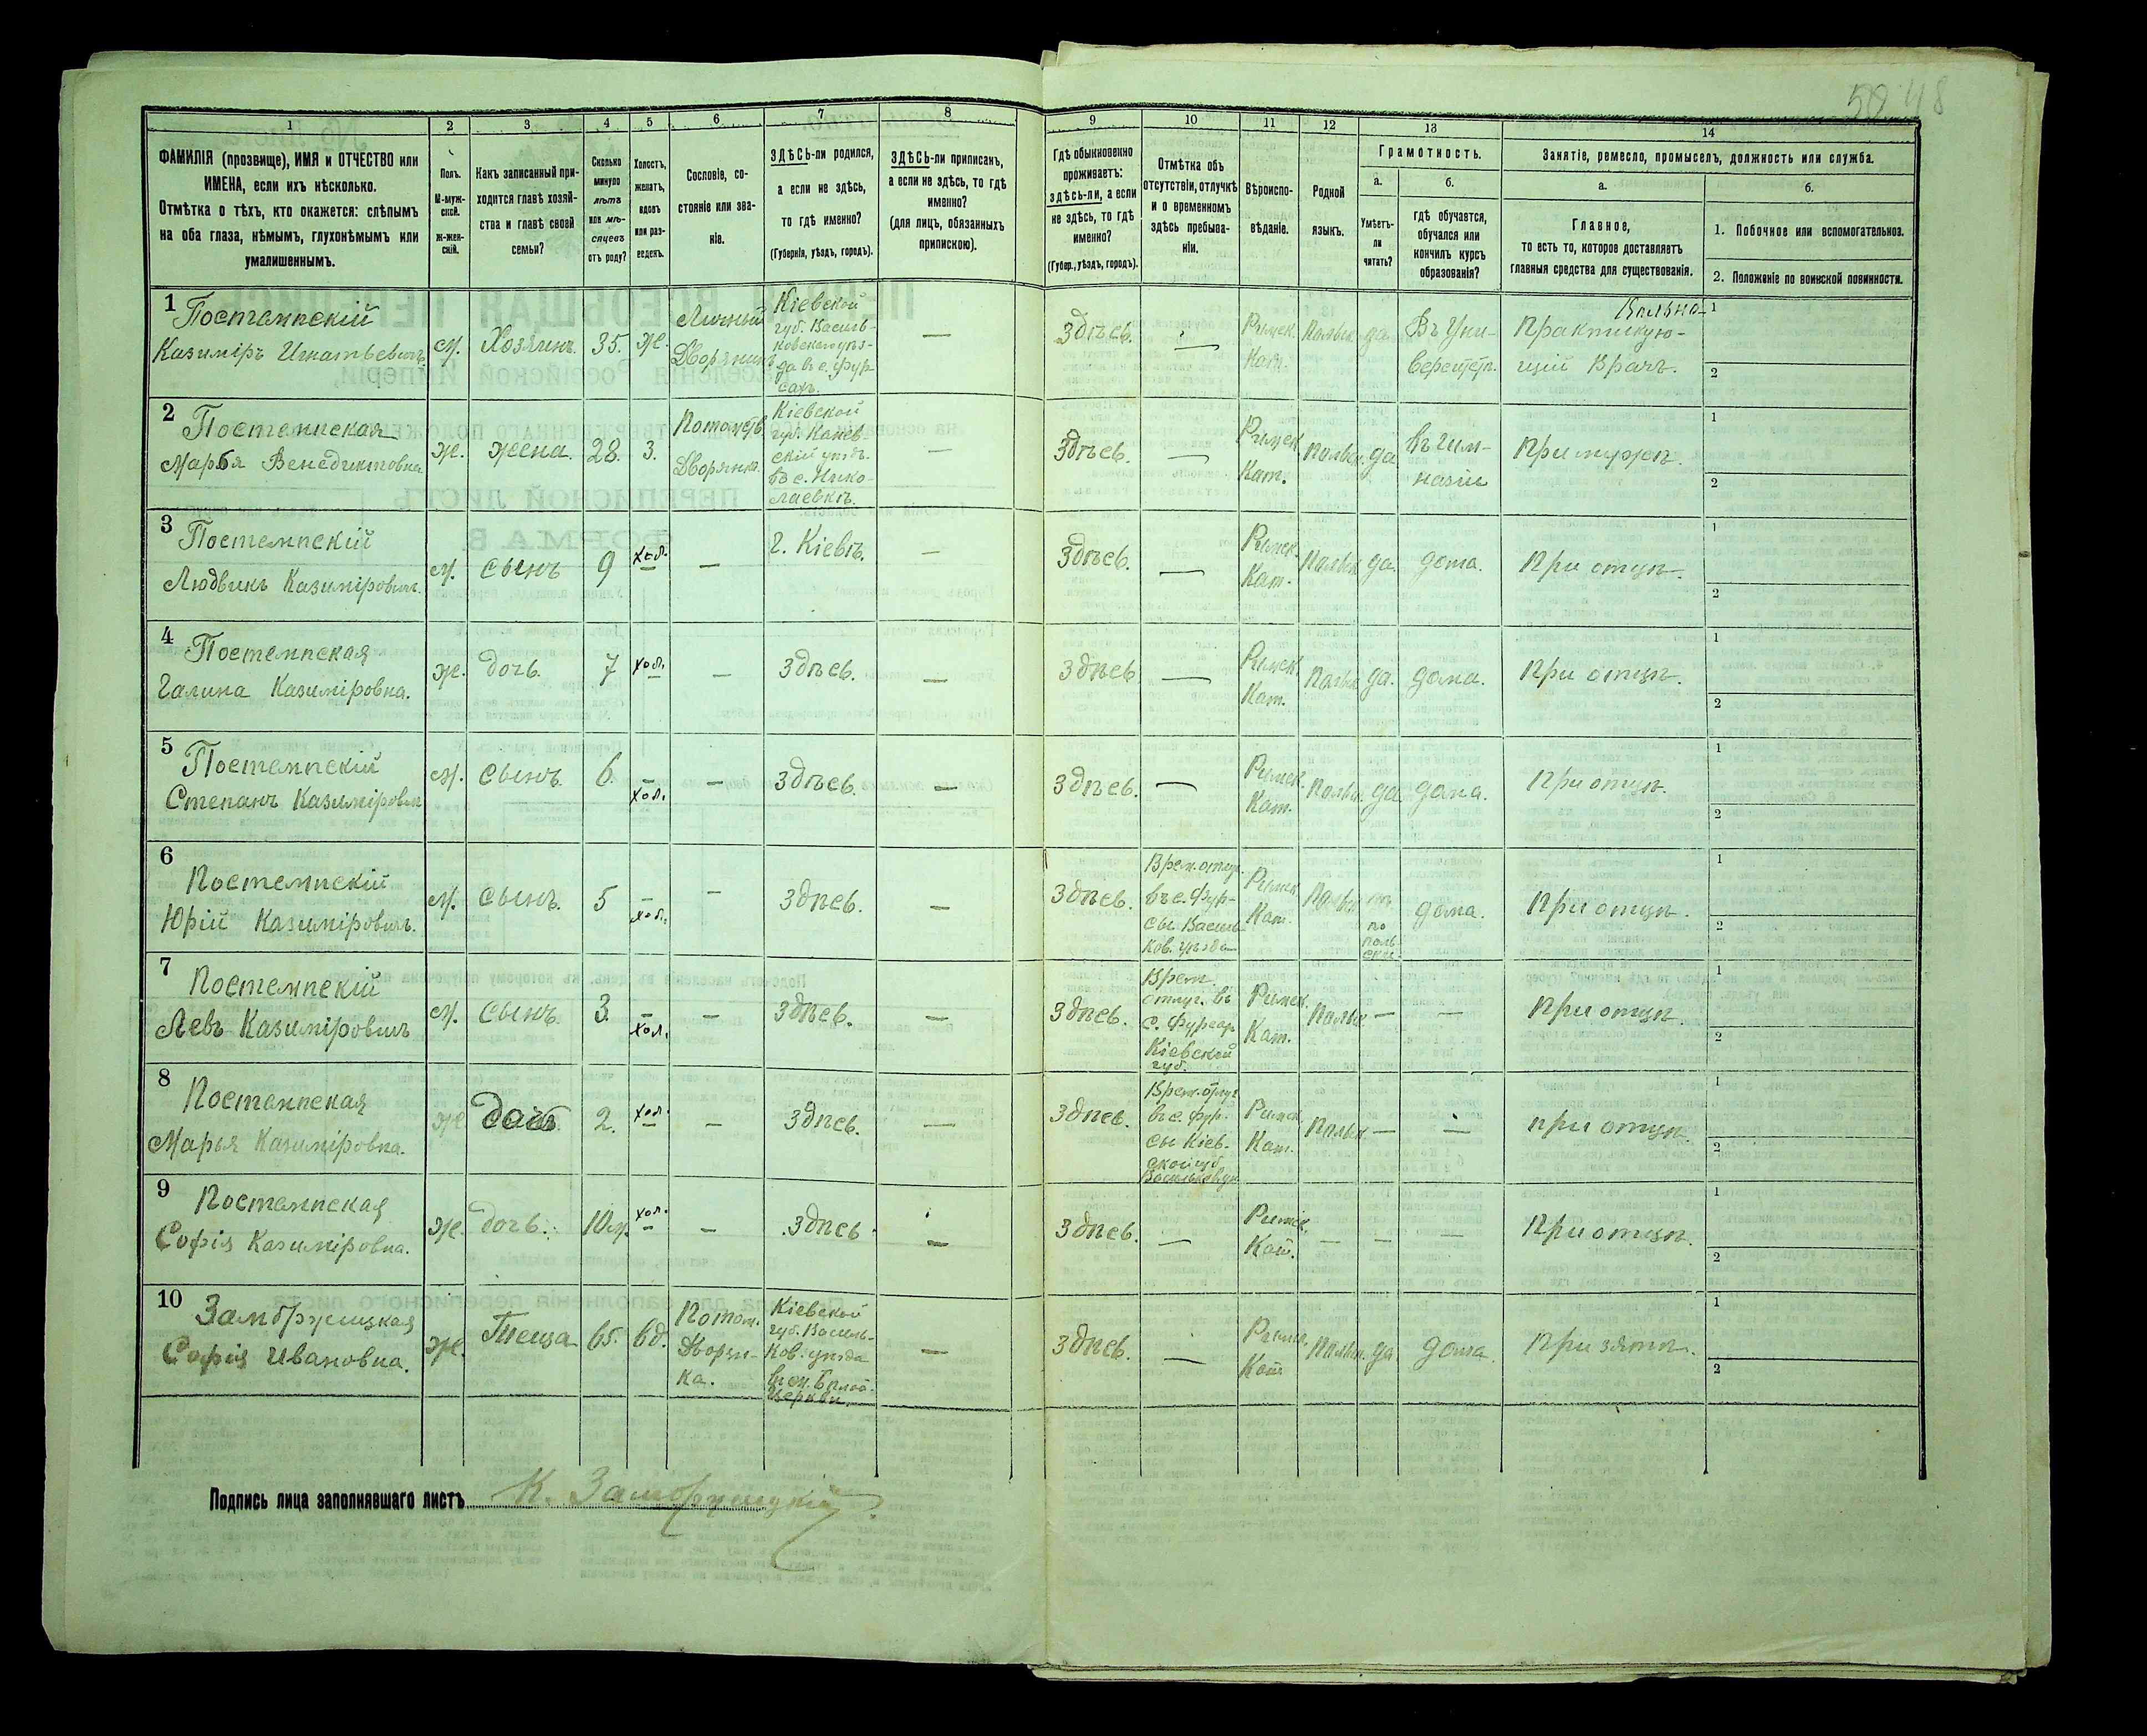 50. 48
1
2
3
4
5
6
7
8
9
10
11
12
13
14
ФАМИЛІЯ (прозвище), ИМЯ и ОТЧЕСТВО или
ИМЕНА, если ихъ нѣсколько.
Отмѣтка о тѣхъ, кто окажется: слѣпымъ
на оба глаза, нѣмымъ, глухонѣмымъ или
умалишеннымъ.
Полъ.
М-муж-
ской.
ж-жен-
скій.
Какъ записанный при-
ходится главѣ хозяй-
ства и главѣ своей
семьи?
Сколько
минуло
лѣтъ
или мѣ-
сяцевъ
отъ роду?
Холостъ,
женатъ,
вдовъ
или раз-
веденъ.
Сословіе, со-
стояніе или зва-
ніе.
ЗДѢСЬ-ли родился,
а если не здѣсь,
то гдѣ именно?
(Губернія, уѣздъ, городъ).
ЗДѢСЬ-ли приписанъ,
а если не здѣсь, то гдѣ
именно?
(для лицъ, обязанныхъ
припискою).
Гдѣ обыкновенно
проживаетъ:
здѣсь-ли, а если
не здѣсь, то гдѣ
именно?
(Губер., уѣздъ, городъ).
Отмѣтка объ
отсутствіи, отлучкѣ
и о временномъ
здѣсь пребыва-
ніи.
Вѣроиспо-
вѣданіе.
Родной
языкъ.
Грамотность.
а.
Умѣетъ-
ли
читать?
б.
гдѣ обучается,
обучался или
кончилъ курсъ
образованія?
Занятіе, ремесло, промыселъ, должность или служба.
а.
Главное,
то есть то, которое доставляетъ
главныя средства для существованія.
б.
1. Побочное или вспомогательное.
2. Положеніе по воинской повинности.
1 Постемпскій
Казиміръ Игнатьевичъ
м. Хозяинъ. 35. же.
Личный
Дворянинъ
Кіевской
губ. Василь-
ковскаго уѣз-
да въ с. Фур
сахъ.
—
Здѣсь. — Римск. Кат. Польск. да
Въ Уни-
верситетѣ.
Вольно-
практикую-
щій Врачъ.
1
2
2 Постемпская
Марья Венедиктовна
ж. жена. 28. З.
Потомств.
Дворянка.
Кіевской
губ. Канев-
скій уѣзд.
въ с. Нико-
лаевкѣ.
—
Здѣсь. — Римск. Кат. Польск. да
въ гим-
назіи
При мужѣ.
1
2
3 Постемпскій
Людвикъ Казиміровичъ.
м. сынъ 9 хол. — г. Кіевѣ. —
Здѣсь. — Римск. Кат. Польск. да. дома. При отцѣ.
1
2
4 Постемпская
Галина Казиміровна.
ж. дочь. 7 хол. — Здѣсь. —
Здѣсь — Римск. Кат. Польск. да. дома. При отцѣ.
1
2
5 Постемпскій
Степанъ Казиміровичъ
м. сынъ. 6. — хол. — Здѣсь. —
Здѣсь. — Римск. Кат. Польск. да дома. При отцѣ.
1
2
6 Постемпскій
Юрій Казиміровичъ.
м. сынъ. 5 — хол. — Здѣсь. —
Здѣсь.
Врем. отлуч.
въ с. Фур-
сы Василь
ков. уѣзда
Римск. Кат. Польск.
по
поль
ски.
дома. При отцѣ.
1
2
7 Постемпскій
Левъ Казиміровичъ
м. сынъ. 3. — хол. — Здѣсь. —
Здѣсь.
Врем.
отлуч. въ
с. Фурсах
Кіевской
губ.
Римск. Кат. Польск. — — При отцѣ.
1
2
8 Постемпская
Марья Казиміровна.
ж дочь. 2. хол. — Здѣсь. —
Здѣсь.
Врем. отлуч
въ с. Фур-
сы Кіев-
ской губ
Васильков. у.
Римск. Кат. Польск. — — при отцѣ.
1
2
9 Постемпская
Софія Казиміровна.
ж. дочь. 10 м. хол. — Здѣсь —
Здѣсь. — Римск. Кат. — — — При отцѣ.
1
2
10 Замбржицкая
Софія Ивановна.
ж. Теща 65. вд.
Потом.
Дворян-
ка.
Кіевской
губ. Василь-
ков. уѣзда
въ м. Бѣлой
Церкви.
—
Здѣсь. — Римск. Кат Польск. да. дома. При зятѣ.
1
2
Подпись лица заполнявшаго листъ К. Замбржицкій